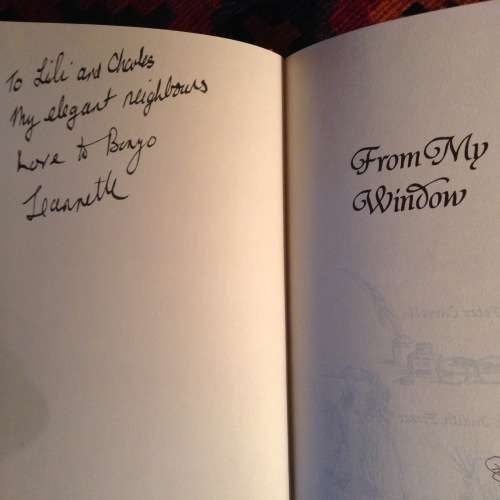 To Lili and Charles
My elegant neighbours
Love to Bongo
Jeannette
From My
Window